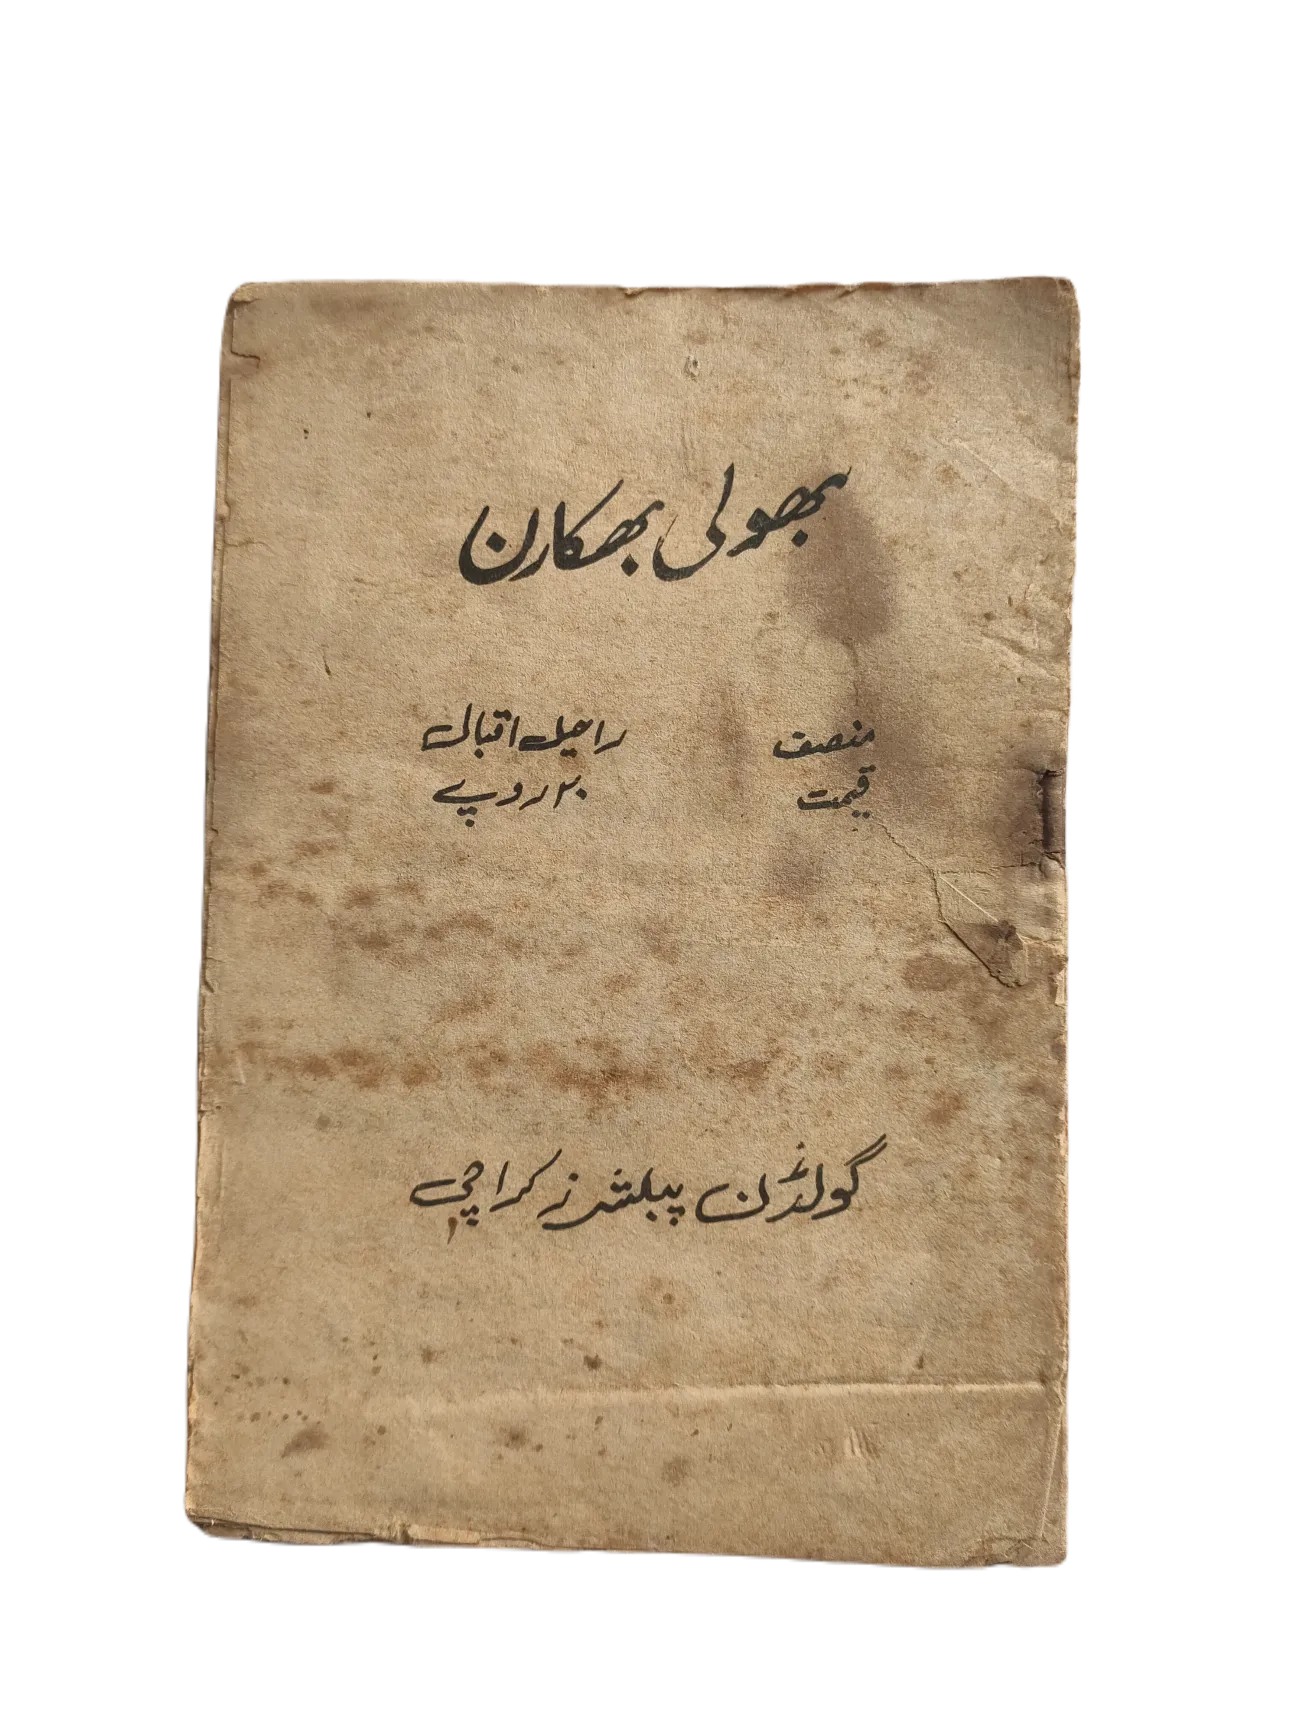 بھولی بھکارن
منصف راحیل اقبال
قیمت ۳۰ روپے
گولڈن پبلشرز کراچی